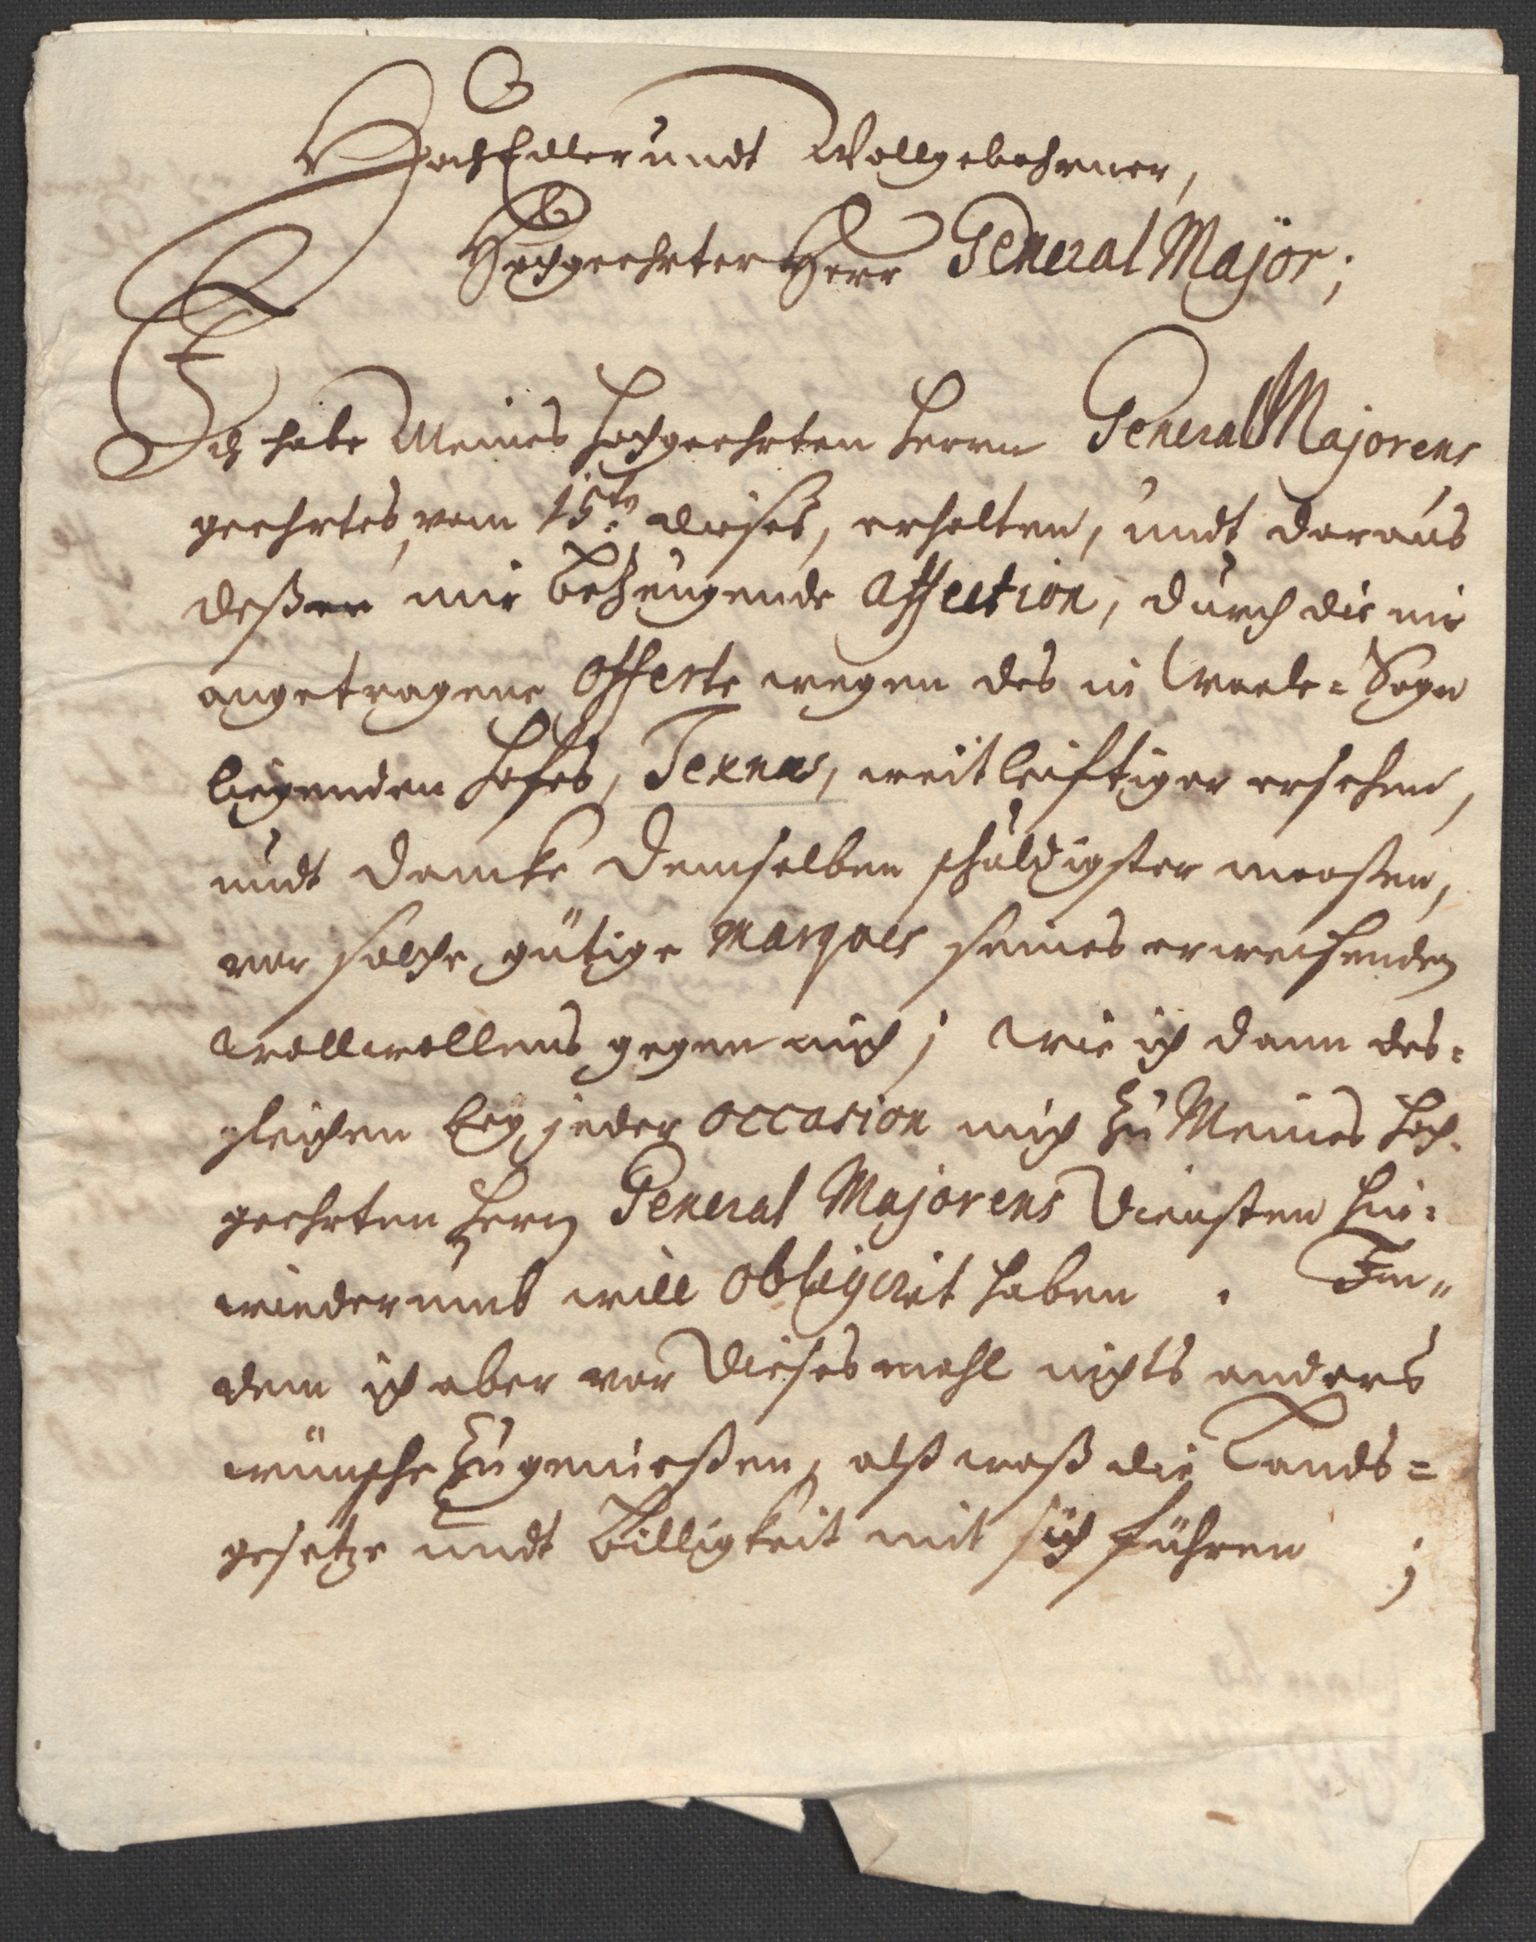 HochEdler undt Wollgebohrner,
Hochgeehrter Herr General Major;
Ich habe Meines hochgeehrten Herrn General Majorens
geehrtes, vom 15ten dieses, erhalten, undt daraus
deßen mir bezeugende affection, durch die mir
angetragene offerte wegen des in Waale=Sogn
liegenden Hofes, Texnas, weitleiftiger ersehen,
undt dancke demselben schuldigster maaßen,
vor solche gütige marques seines erweisenden
wollwollens gegen mich; wie ich dann des=
gleichen bey jeder occasion mich zu Meines hoch=
geehrten Herrn General Majorens Diensten hin=
wiederumb will obligirt haben. In=
dem ich aber vor dieses mahl nichts anders
wünsche zu genießen, alß waß die Lands=
gesetze undt Billigkeit mit sich führen;